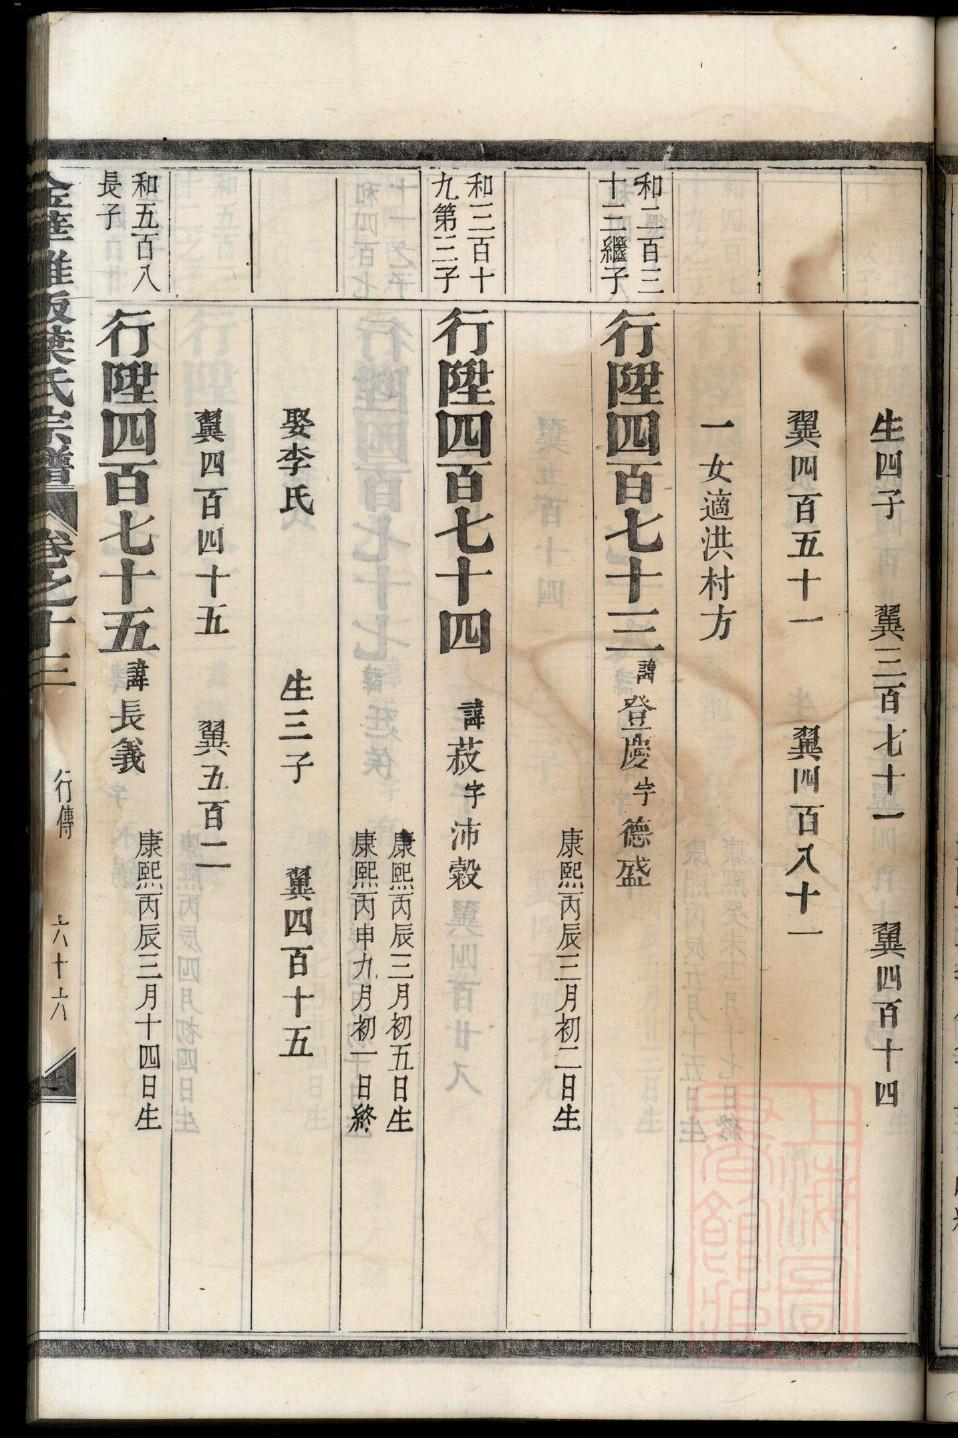 生四子　翼三百七十一　翼四百十四
翼四百五十一　翼四百八十一
一女適洪村方
和二百三
十二繼子
行陞四百七十三諱登慶字德盛
康熙丙辰三月初二日生
和三百十
九第三子
行陞四百七十四　諱菽字沛穀
康熙丙辰三月初五日生
康熙丙申九月初一日終
娶李氏　生三子　翼四百十五
翼四百四十五　翼五百二
和五百八
長子
行陞四百七十五諱長義
康熙丙辰三月十四日生
金華雅畈葉氏宗譜　卷之十三　行傳　六十六
上海圖
書館藏